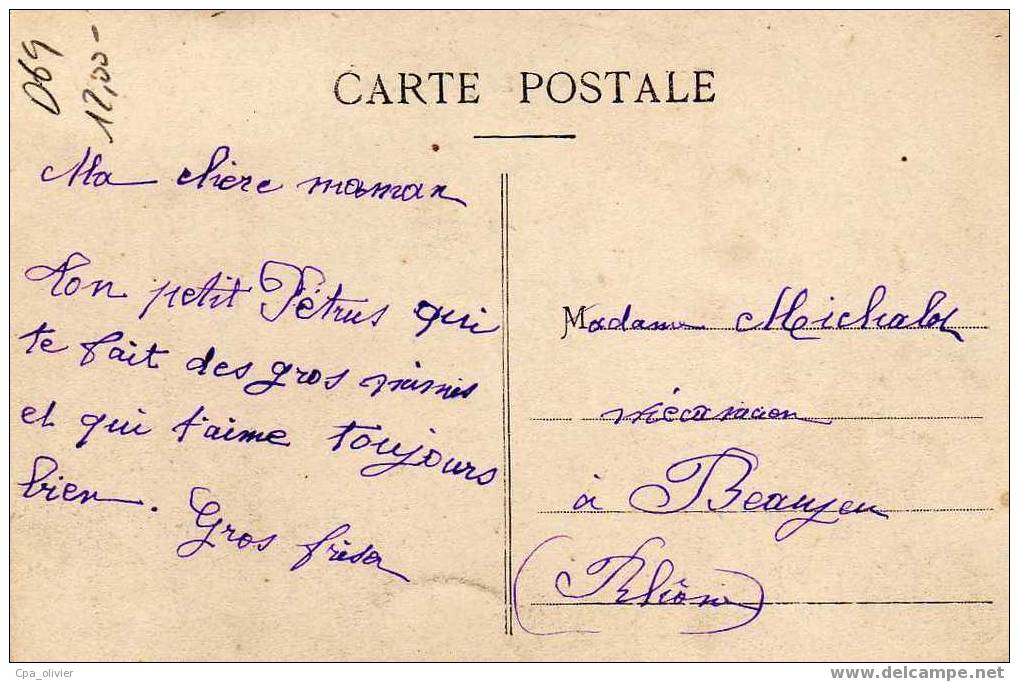 D69
12,00-
CARTE POSTALE
Ma chère maman
ton petit Pétrus qui
te fait des gros mimis
et qui t'aime toujours
bien. Gros frisa
Madame Michalot
mécanicien
à Beaujeu
(Rhône)
Cpa_olivier
www.delcampe.net